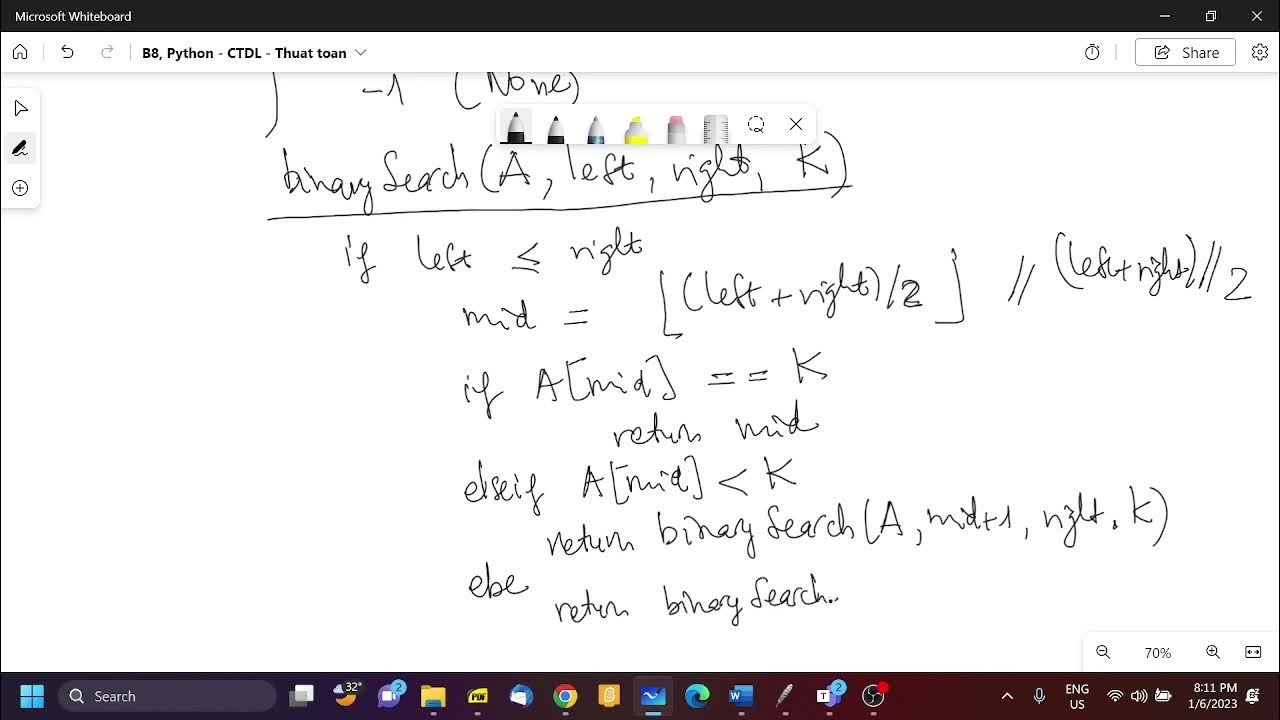 Microsoft Whiteboard
B8, Python - CTDL - Thuat toan
Share
-1 (None)
binarySearch(A, left, right, K)
if left ≤ right
mid = ⌊(left + right)/2⌋ // (left+right)//2
if A[mid] == K
return mid
elseif A[mid] < K
return binarySearch(A, mid+1, right, K)
else
return binarySearch..
70%
Search
32°
2
PDF
2
ENG
US
8:11 PM
1/6/2023